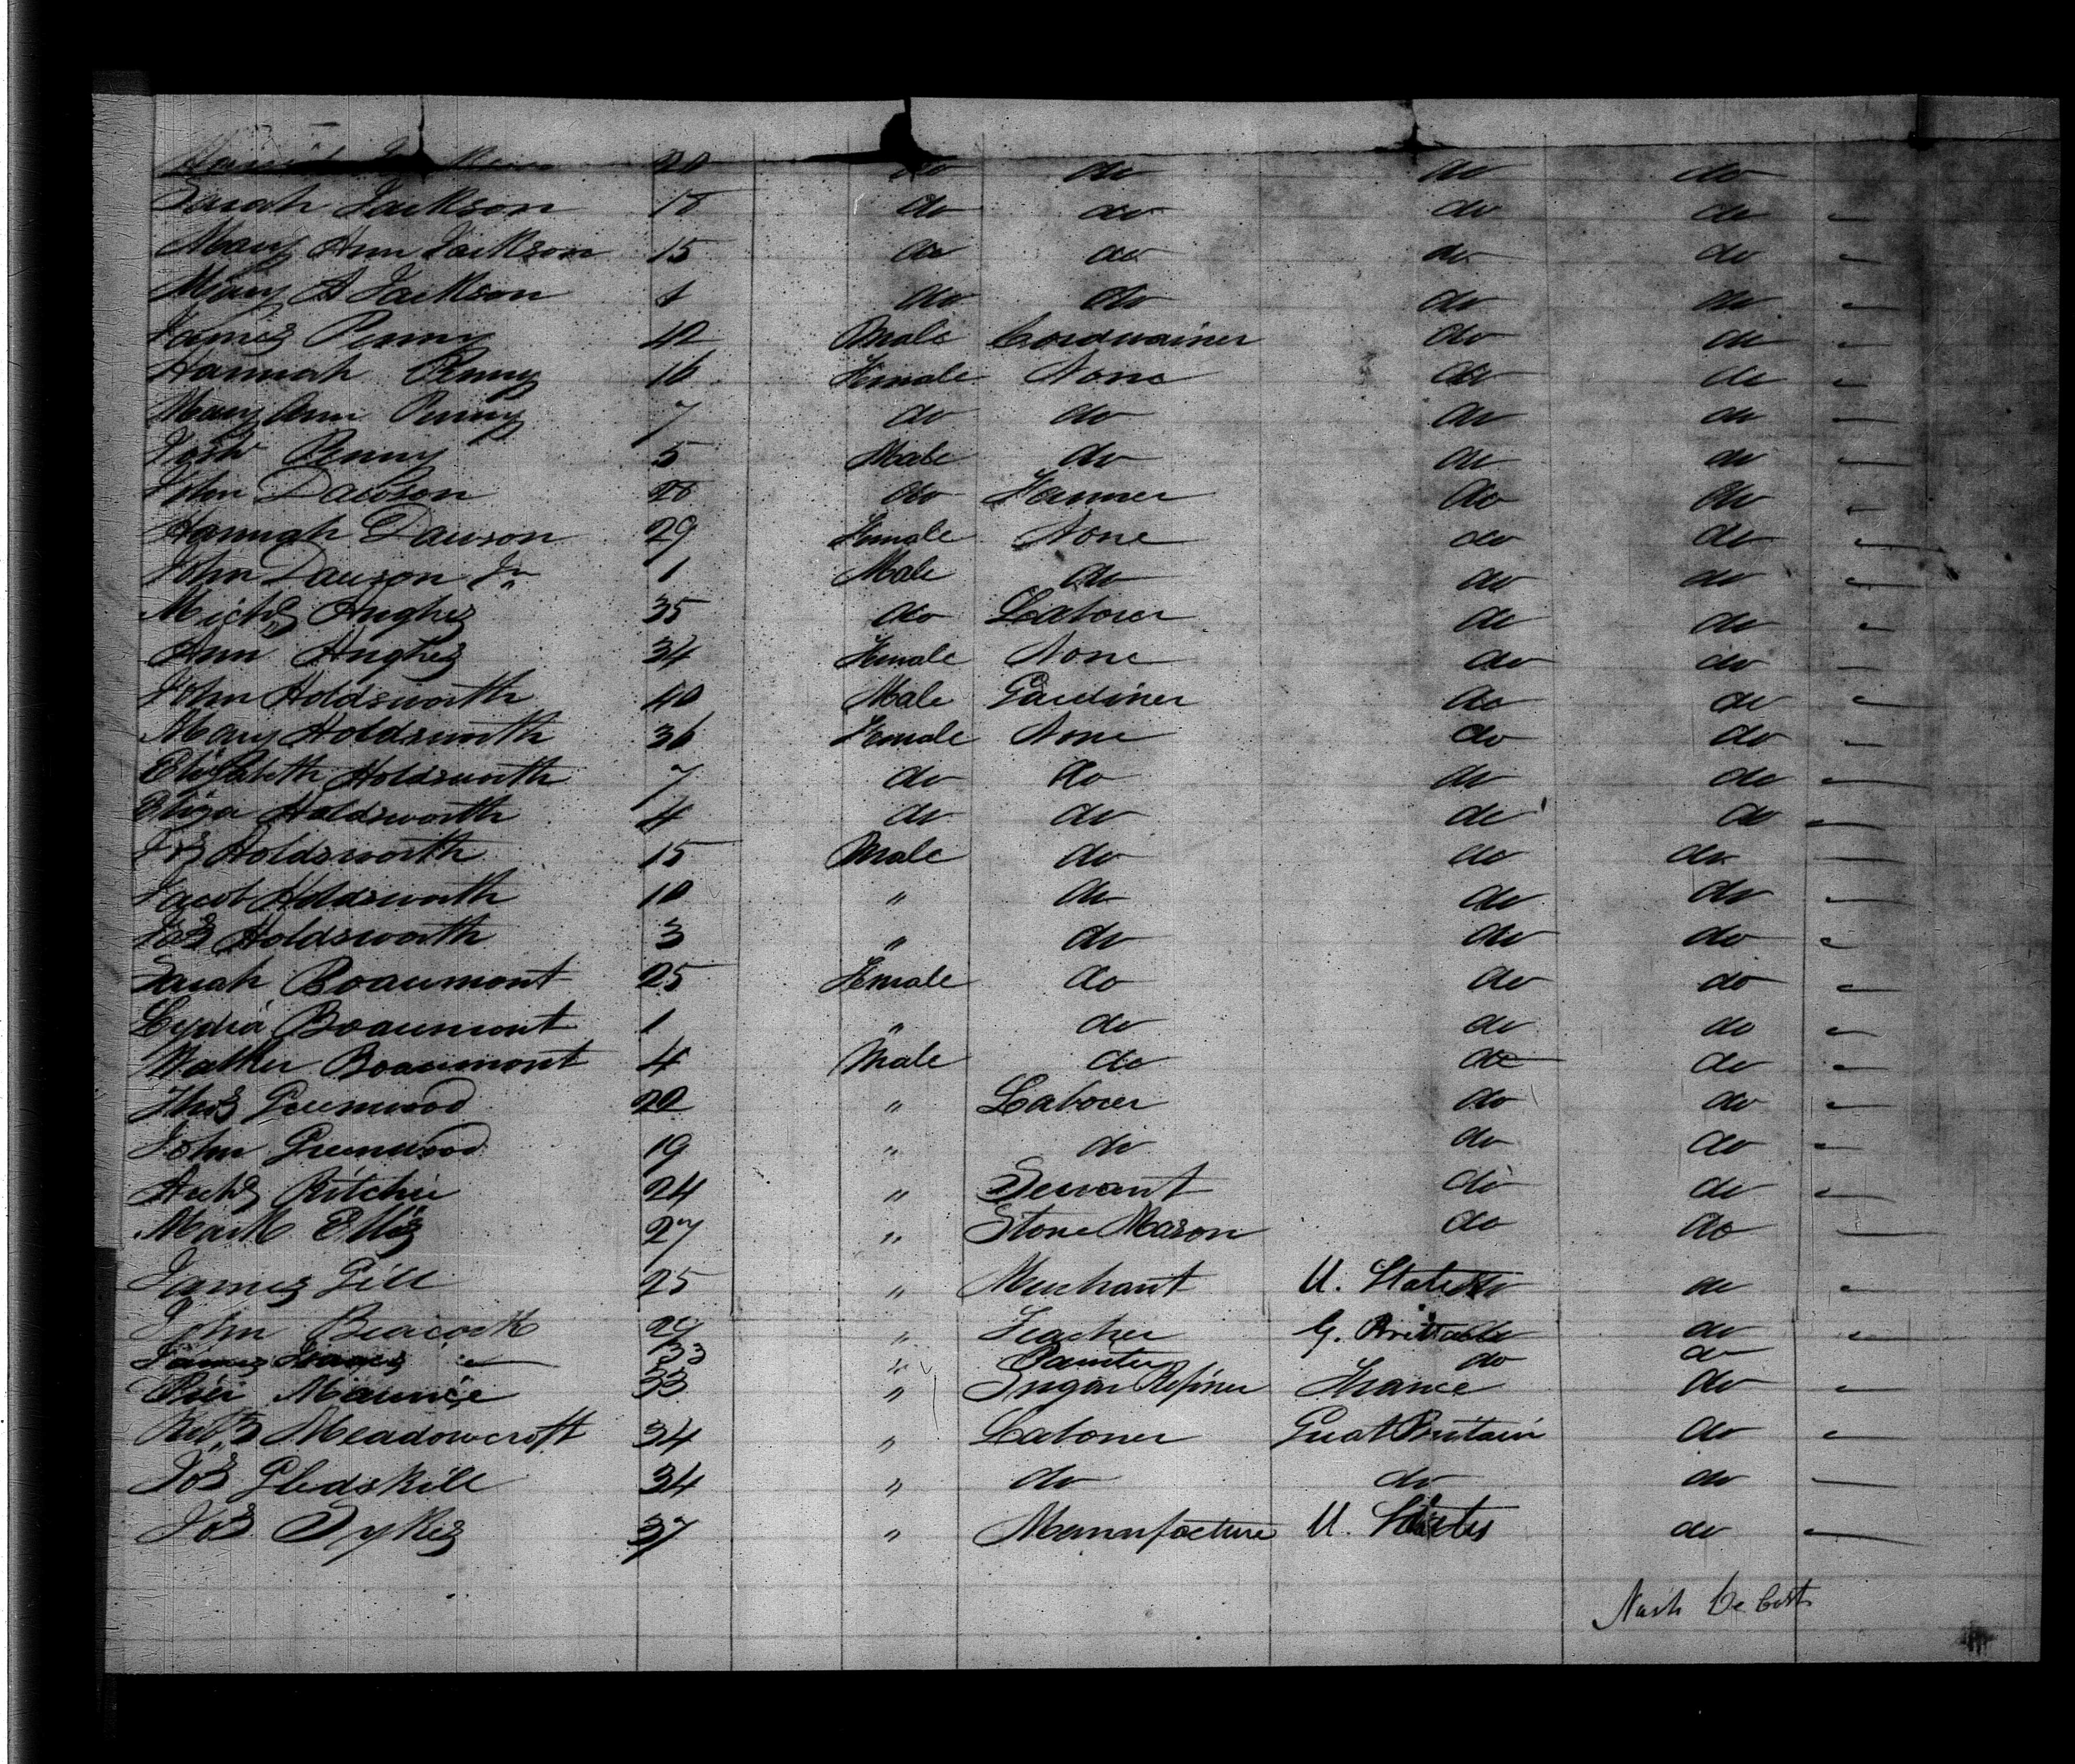 20 do do do do
Sarah Jackson 18 do do do do
Mary Ann Jackson 15 do do do do
Mary A Jackson 1 do do do do
James Penny 42 Male Cordwainer do do
Hannah Penny 16 Female None do do
Mary Ann Penny 7 do do do do
Josh Penny 5 Male do do do
John Dawson 28 do Farmer do do
Hannah Dawson 29 Female None do do
John Dawson Jr 1 Male do do do
Michs Hughes 35 do Laborer do do
Ann Hughes 34 Female None do do
John Holdsworth 40 Male Gardiner do do
Mary Holdsworth 36 Female None do do
Elizabeth Holdsworth 7 do do do do
Eliza Holdsworth 4 do do do do
Jos Holdsworth 15 Male do do do
Jacob Holdsworth 10 " do do do
Jas Holdsworth 3 " do do do
Sarah Boaumont 25 Female do do do
Lydia Boaumont 1 " do do do
Walker Boaumont 4 Male do do do
Thos Greenwood 22 " Laborer do do
John Greenwood 19 " do do do
Archs Ritchie 24 " Servant do do
Mark Ellis 27 " Stone Mason do do
James Gill 25 " Merchant U. States do
John Beacock 29 " Teacher G. Britain do
James 33 " Painter do do
Maurice 33 " Sugar Refiner France do
Robt Meadowcroft 34 " Laborer Great Britain do
Jos Gledskill 34 " do do do
Jos Sykes 37 " Manufacture U. States do